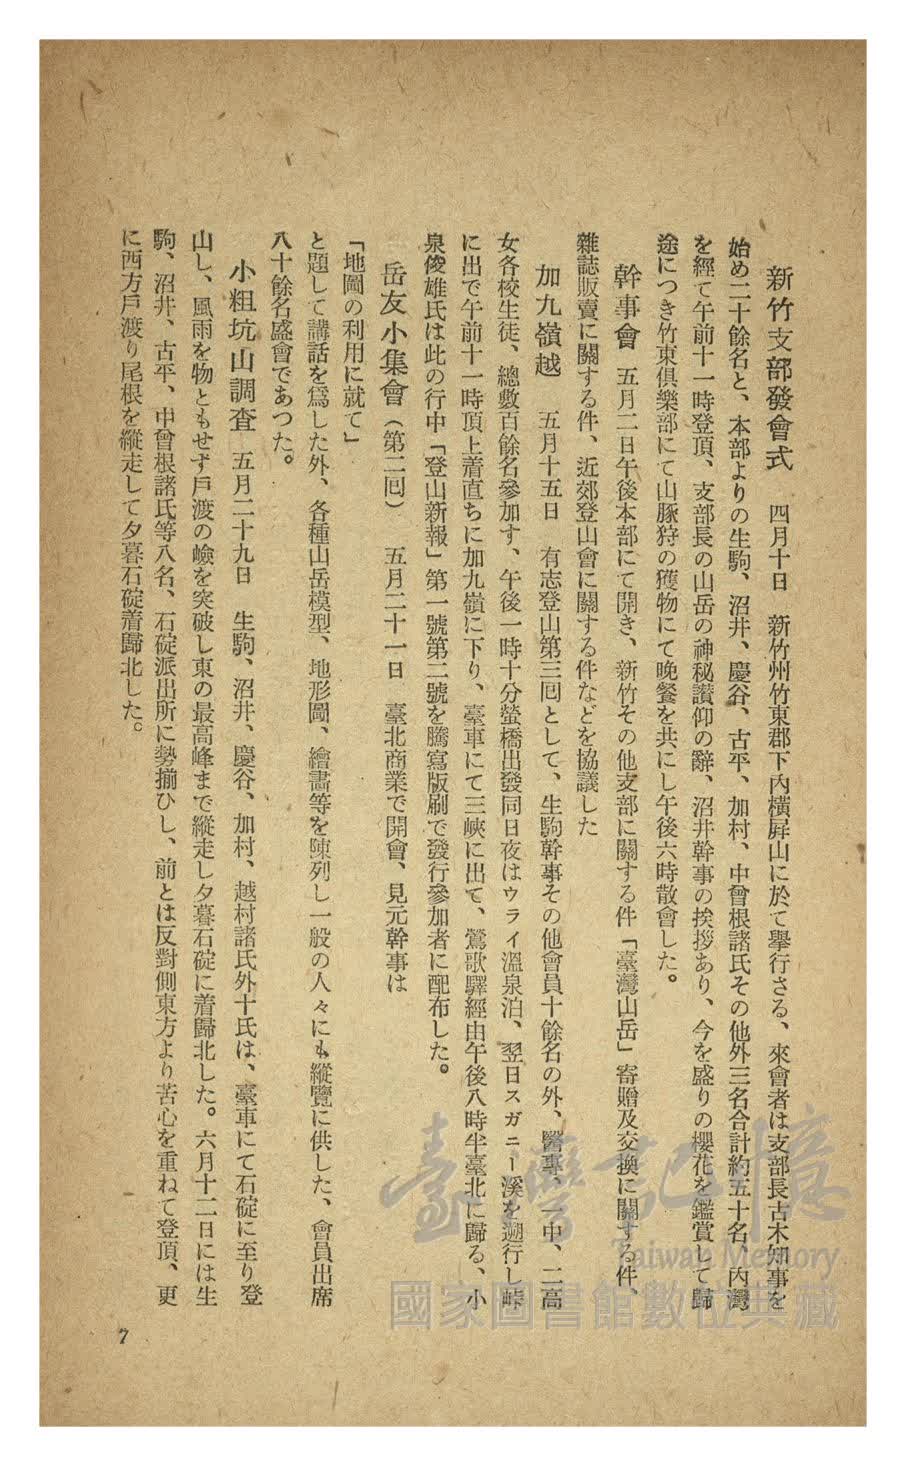 新竹支部發會式　四月十日　新竹州竹東郡下内橫屏山に於て擧行さる、來會者は支部長古木知事を
始め二十餘名と、本部よりの生駒、沼井、慶谷、古平、加村、中曾根諸氏その他外三名合計約五十名、内灣
を經て午前十一時登頂、支部長の山岳の神秘讃仰の辭、沼井幹事の挨拶あり、今を盛りの櫻花を鑑賞して歸
途につき竹東俱樂部にて山豚狩の獲物にて晩餐を共にし午後六時散會した。
幹事會　五月二日午後本部にて開き、新竹その他支部に關する件「臺灣山岳」寄贈及交換に關する件、
雜誌販賣に關する件、近郊登山會に關する件などを協議した
加九嶺越　五月十五日　有志登山第三回として、生駒幹事その他會員十餘名の外、醫專、一中、二高
女各校生徒、總數百餘名參加す、午後一時十分螢橋出發同日夜はウライ溫泉泊、翌日スガニー溪を遡行し峠
に出で午前十一時頂上着直ちに加九嶺に下り、臺車にて三峽に出て、鶯歌驛經由午後八時半臺北に歸る、小
泉俊雄氏は此の行中「登山新報」第一號第二號を騰寫版刷で發行參加者に配布した。
岳友小集會（第二回）　五月二十一日　臺北商業で開會、見元幹事は
「地圖の利用に就て」
と題して講話を爲した外、各種山岳模型、地形圖、繪畵等を陳列し一般の人々にも縱覽に供した、會員出席
八十餘名盛會であつた。
小粗坑山調査　五月二十九日　生駒、沼井、慶谷、加村、越村諸氏外十氏は、臺車にて石碇に至り登
山し、風雨を物ともせず戶渡の嶮を突破し東の最高峰まで縱走し夕暮石碇に着歸北した。六月十二日には生
駒、沼井、古平、中曾根諸氏等八名、石碇派出所に勢揃ひし、前とは反對側東方より苦心を重ねて登頂、更
に西方戶渡り尾根を縱走して夕暮石碇着歸北した。
7
臺灣記憶
Taiwan Memory
國家圖書館數位典藏